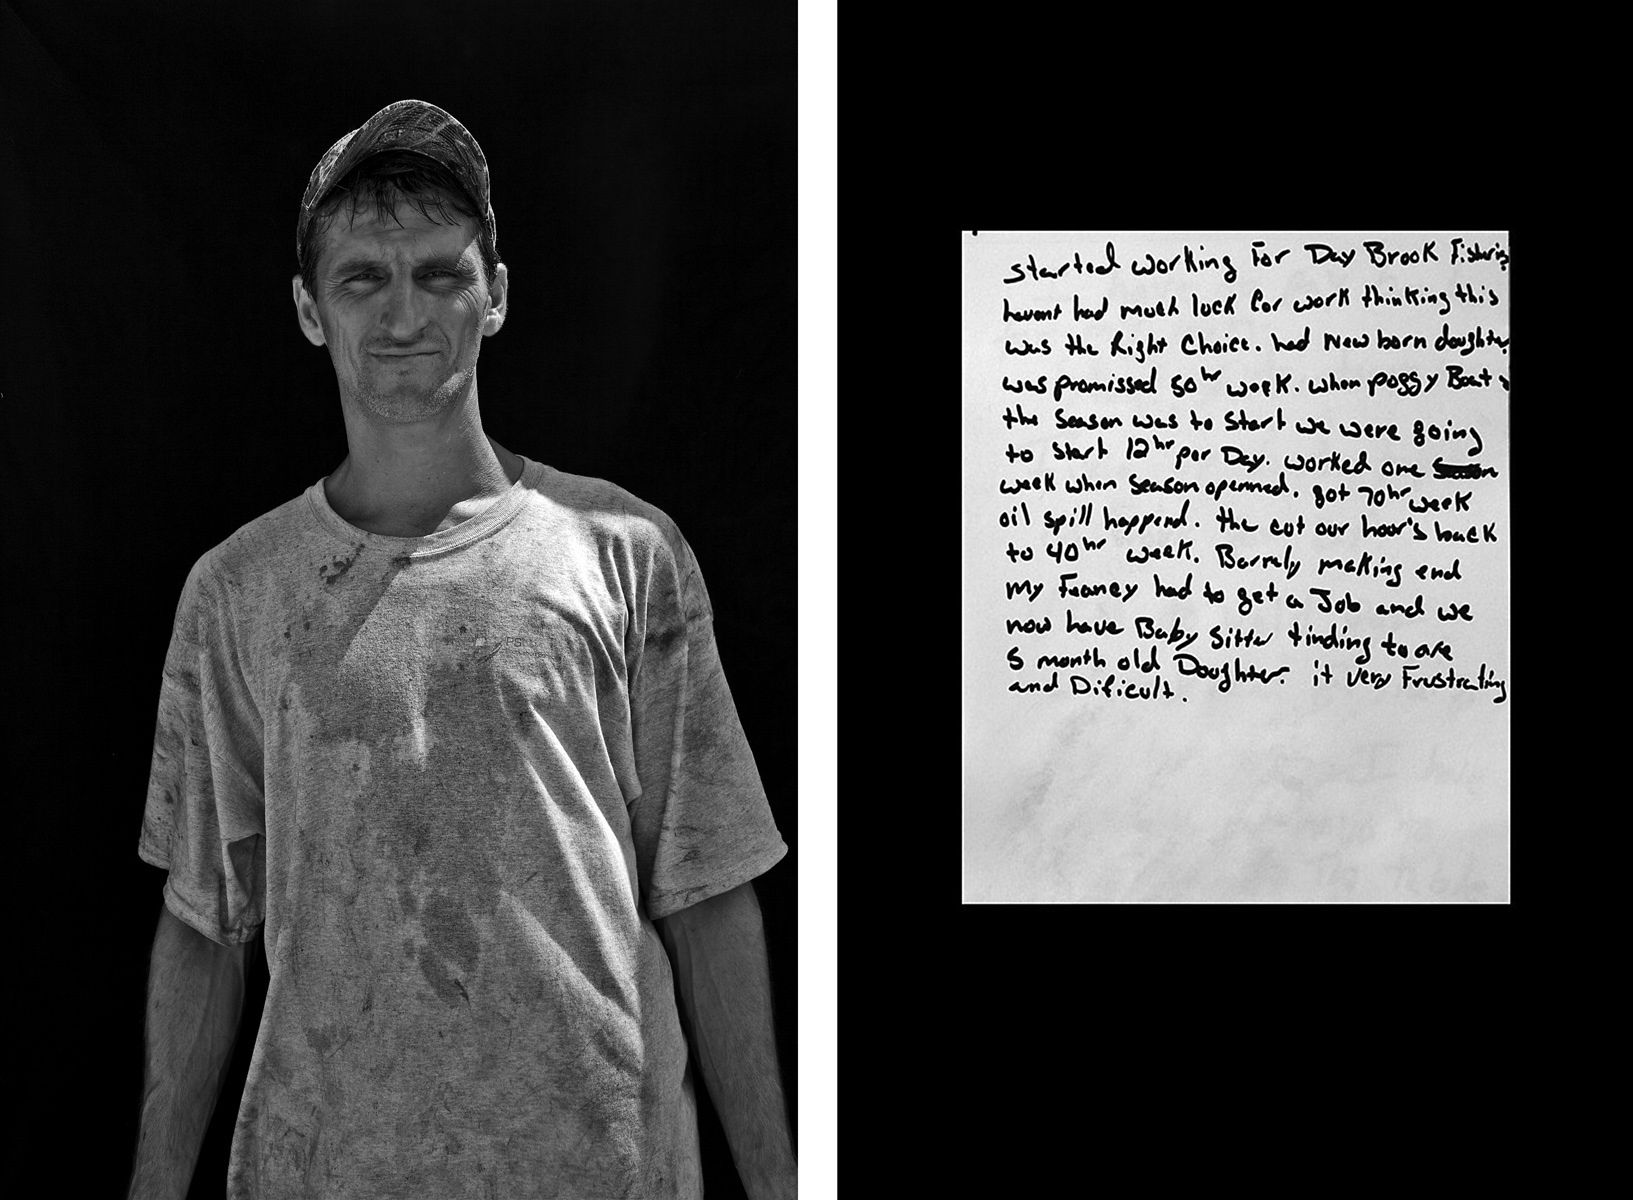 started working For Day Brook Fisheris
havent had much luck for work thinking this
was the Right Choice. had New born daughter
was promissed 50 hr week. when poggy Boat
the season was to start we were going
to start 12 hr per Day. worked one
week when season openned. got 70 hr week
oil spill happend. the cut our hour's back
to 40 hr week. Barrely making end
my Fianey had to get a Job and we
now have Baby sitter tinding to are
5 month old Doughter. it very Frustrating
and Dificult.